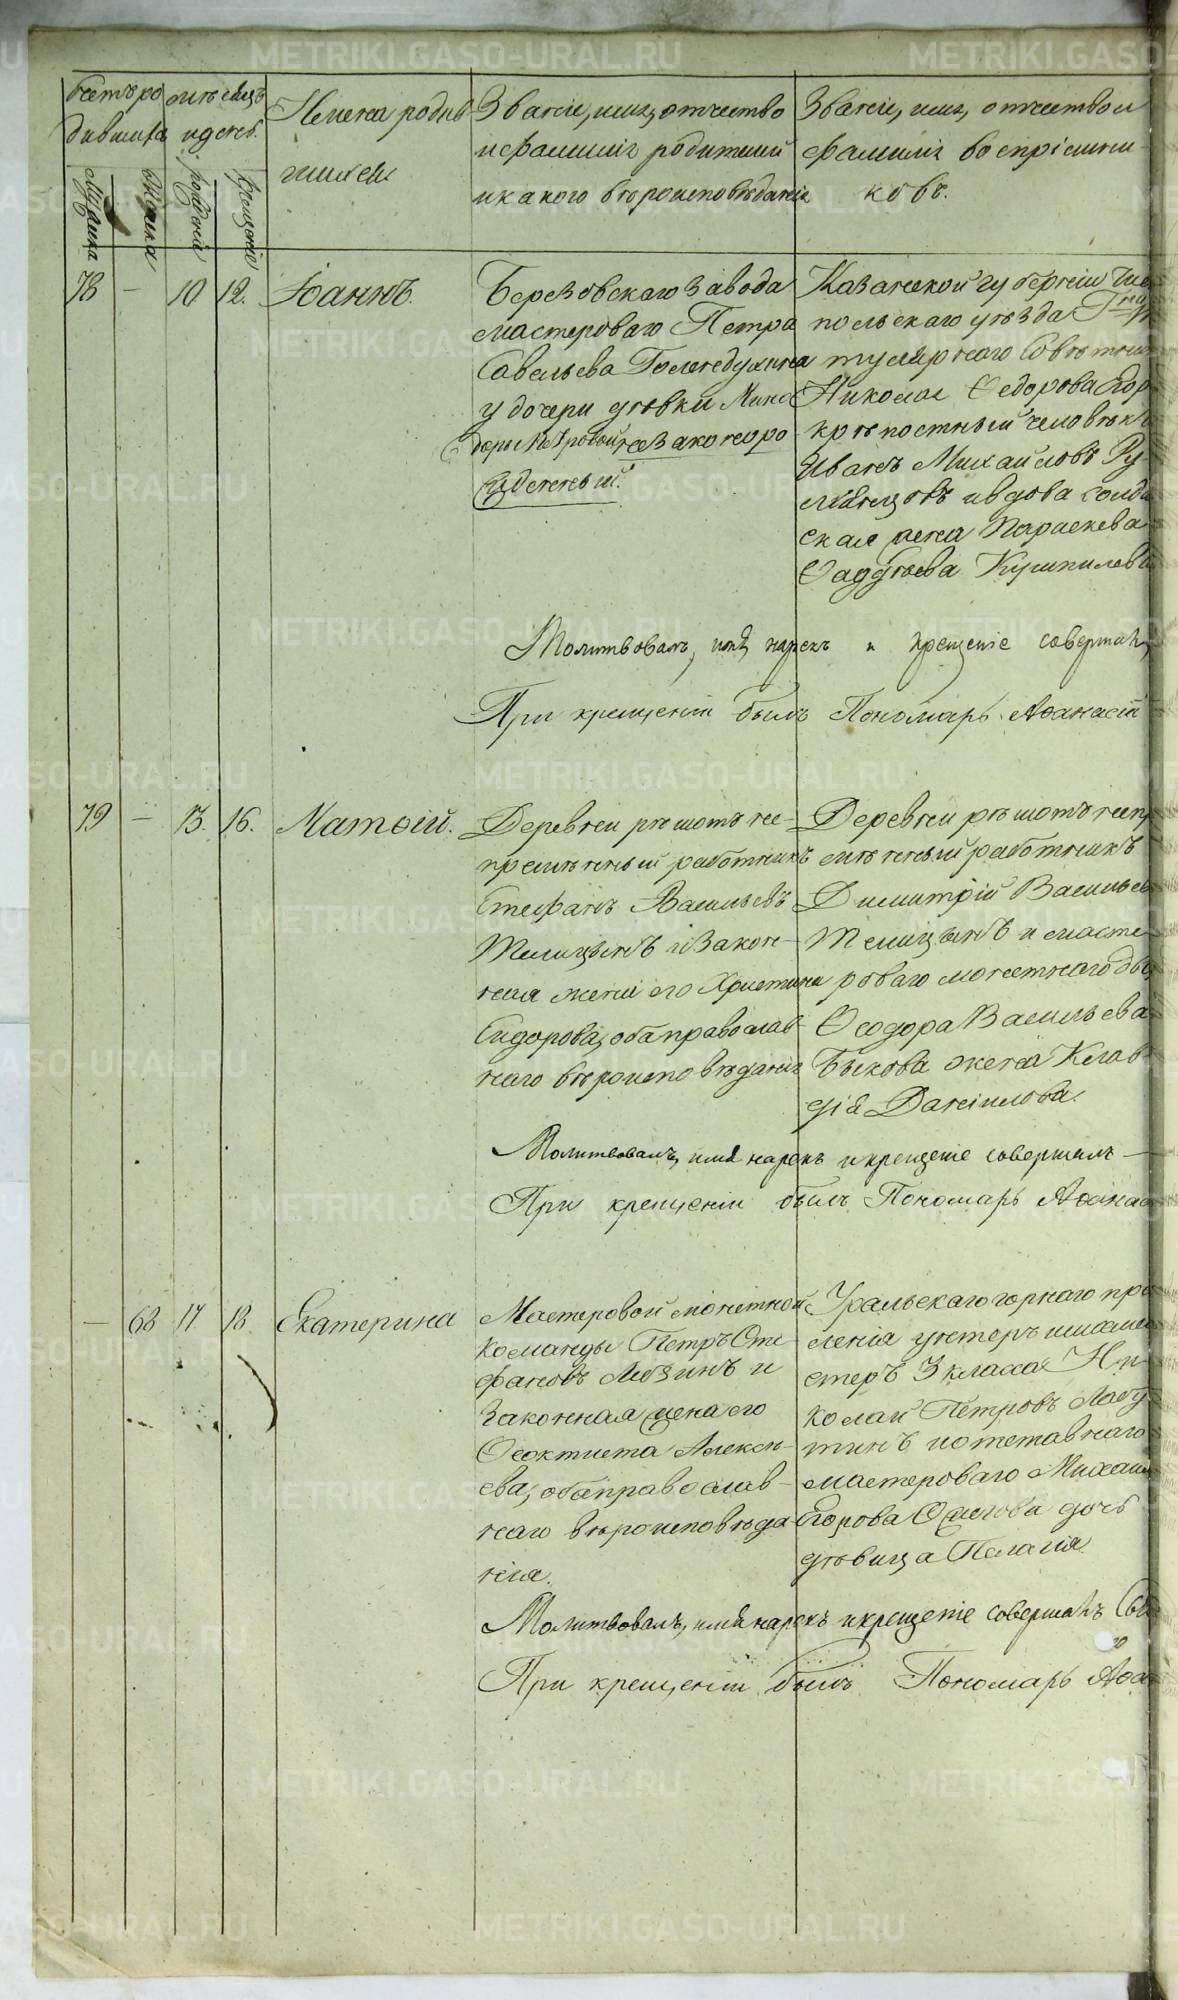 Счетъ ро
дившихся
мѣсяцъ
и день.
Мужска
Женска
рожденія
крещенія
Имена родив
шихся
Званіе, имя, отчество
и фамилія родителей
и какого вѣроисповѣданія
Званіе, имя, отчество и
фамилія воспріемни
ковъ.
78 — 10 12. Іоаннъ.
Березовскаго завода
мастероваго Петра
Савельева
у дочери дѣвки
Петровой незаконоро
жденный.
Казанской губерніи
польскаго уѣзда
Совѣтни
Николая Федорова
крѣпостный человѣкъ
Иванъ Михайловъ Ру
мянцовъ и вдова солда
ская жена Параскева
Фаддѣева
Молитвовалъ, имя нарекъ и крещеніе совершалъ
При крещеніи былъ Пономарь Аѳанасій
79 — 13. 16. Матѳій.
Деревни рѣшотъ не-
премѣнный работникъ
Стефанъ Васильевъ
Телицынъ и закон-
ная жена его Христина
Сидорова, оба православ-
наго вѣроисповѣданія
Деревни рѣшотъ непр
мѣнный работникъ
Димитрій Васильев
Телицынъ и масте-
роваго монетнаго дво
Ѳеодора Васильева
Быкова жена Клав-
дія Даніилова.
Молитвовалъ, имя нарекъ и крещеніе совершалъ —
При крещеніи былъ Пономарь Аѳанас
— 68 17 18. Екатерина
Мастеровой монетной
команды Петръ Сте-
фановъ Лобзинъ и
законная жена его
Ѳеоктиста Алексѣ-
ева, оба православ-
наго вѣроисповѣда
нія.
Уральскаго горнаго пра
ленія унтеръ шихтме
стеръ 3 класса Ни-
колай Петровъ Лобу
тинъ и отставнаго
мастероваго Михаил
Егорова Ожегова дочь
дѣвица Пелагія.
Молитвовалъ, имя нарекъ и крещеніе совершалъ
При крещеніи былъ Пономарь Аѳа
METRIKI.GASO-URAL.RU